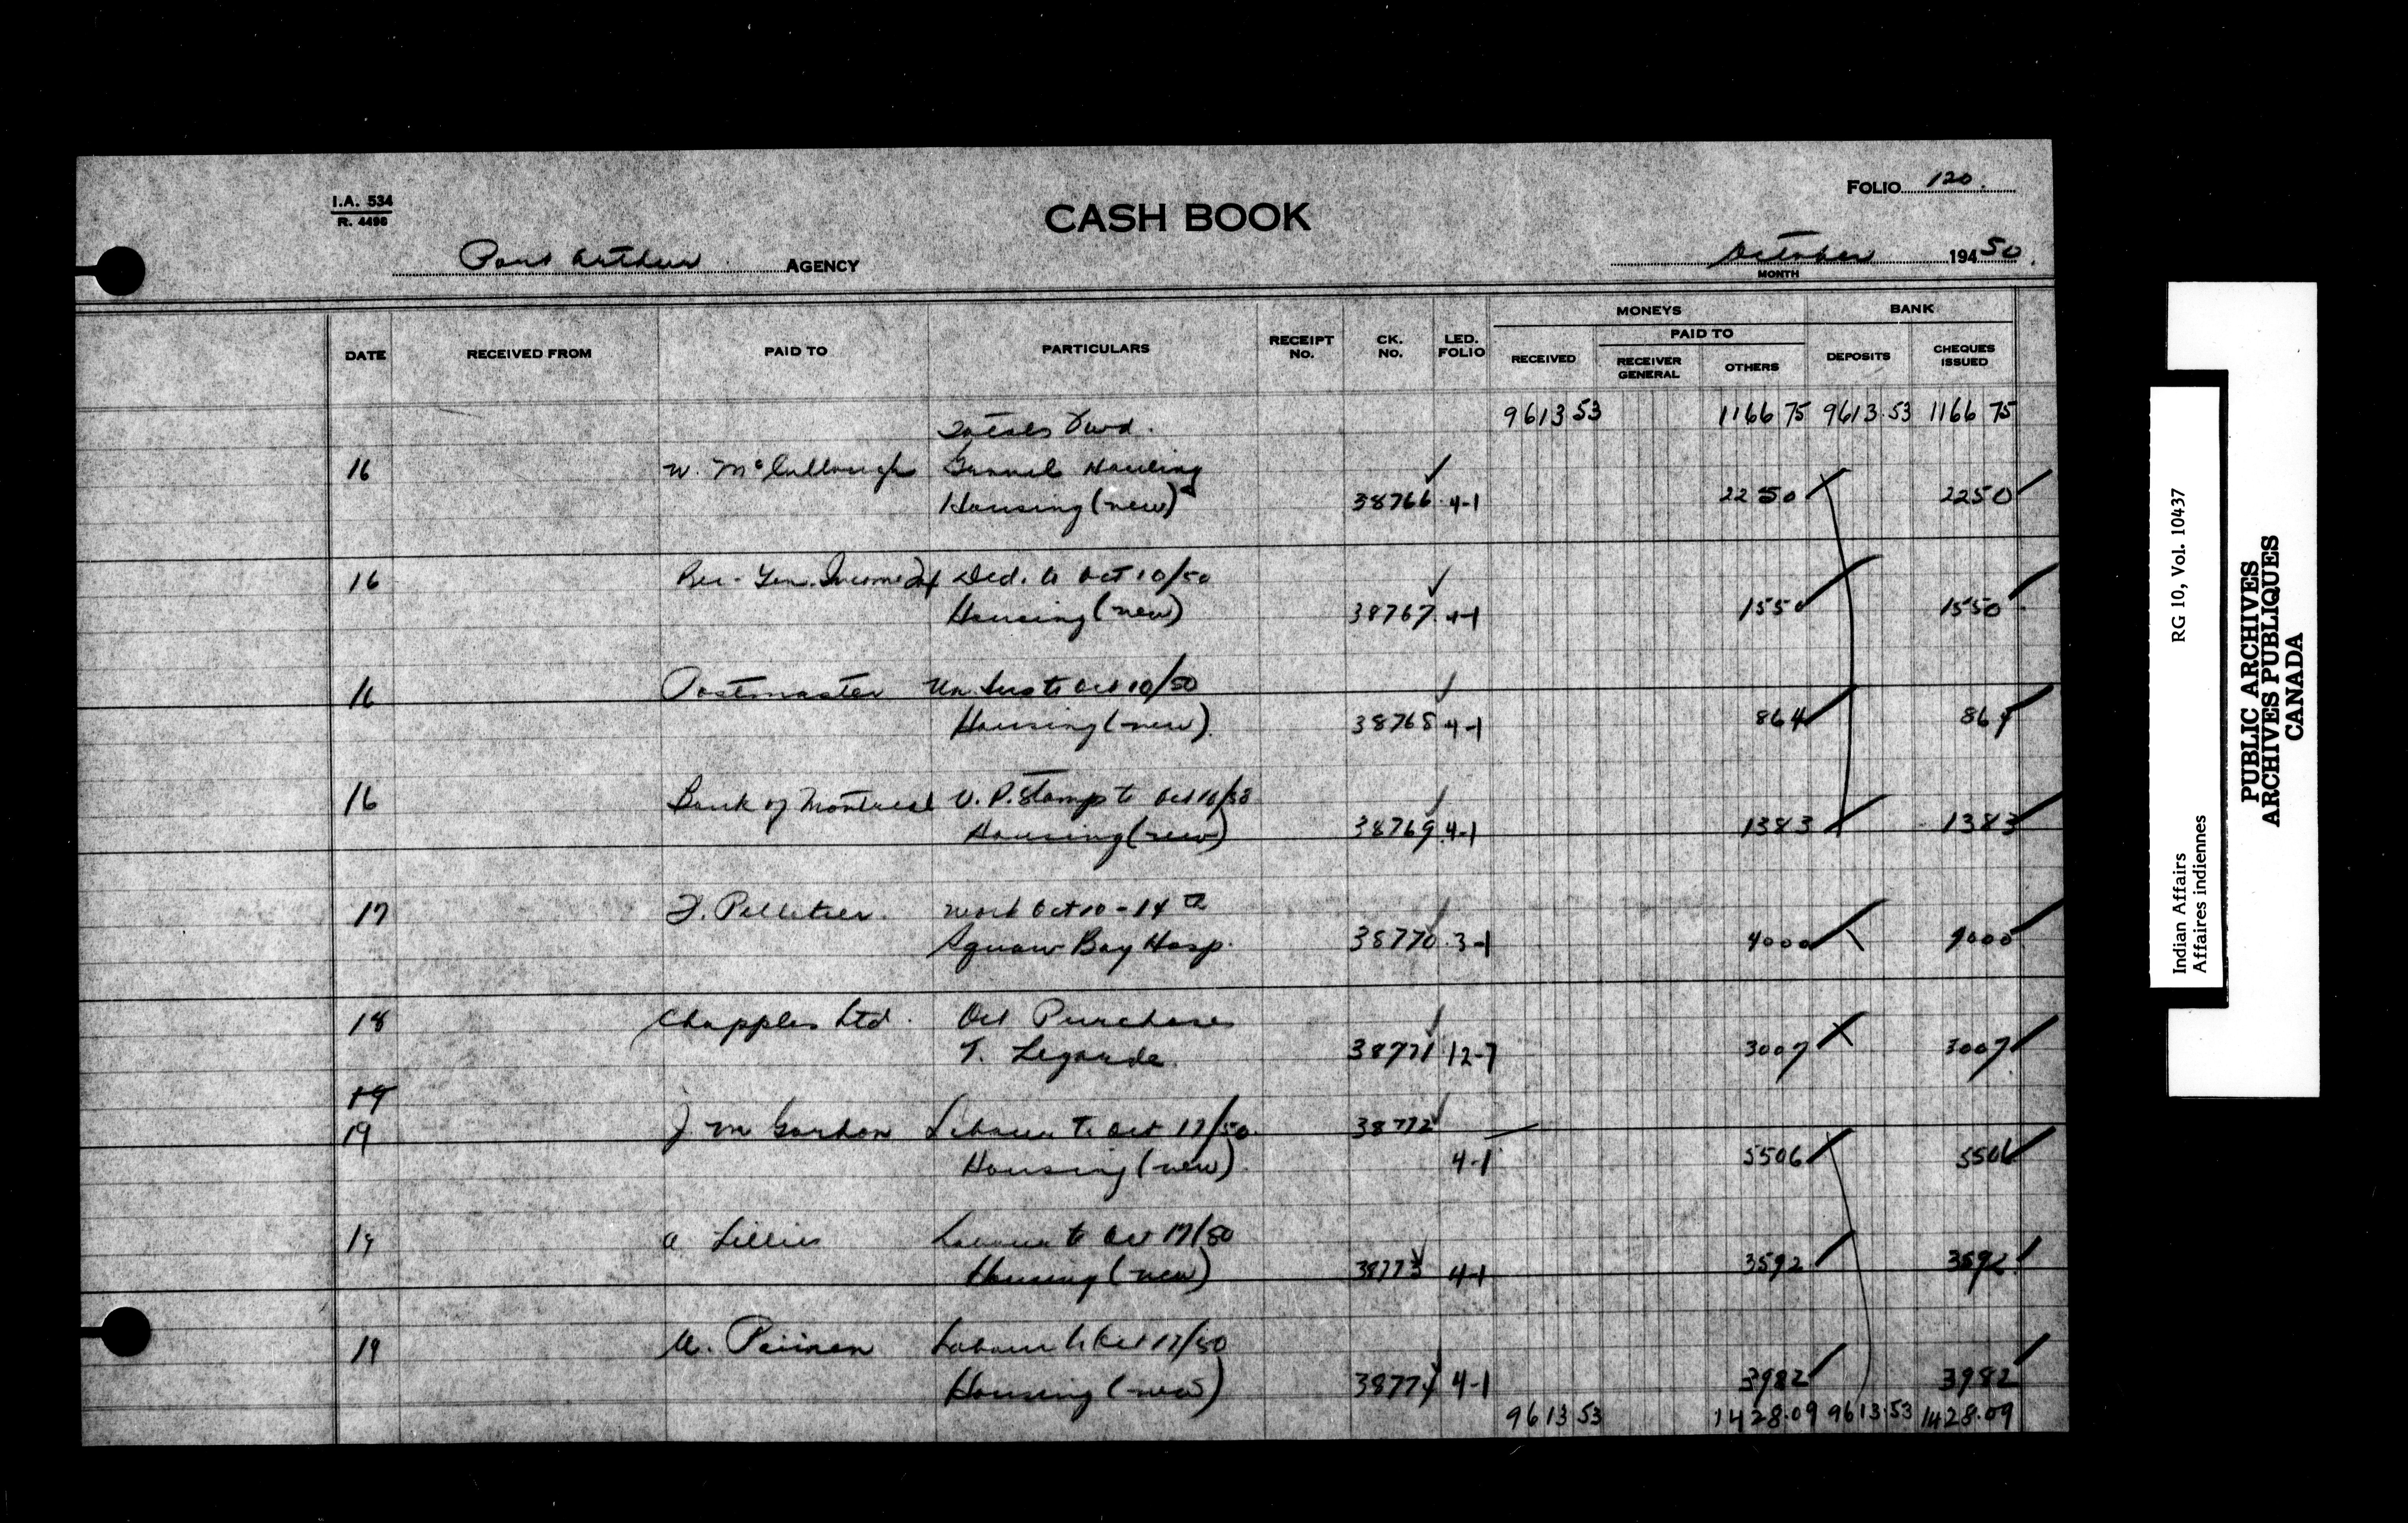 I.A. 534
R. 4496
CASH BOOK
FOLIO 120.
Port Arthur AGENCY
October 194 50.
MONTH
MONEYS BANK
PAID TO
DATE RECEIVED FROM PAID TO PARTICULARS RECEIPT No. CK. No. LED. FOLIO RECEIVED RECEIVER GENERAL OTHERS DEPOSITS CHEQUES ISSUED
Totals Fwd. 9613 53 1166 75 9613.53 1166 75
16 W. McCullough Gravel Hauling
Housing (new) 38766 4-1 22 50 22 50
16 Rec. Gen. Income Tax Ded. to Oct 10/50
Housing (new) 38767 4-1 15 50 15 50
16 Postmaster Un. Ins to Oct 10/50
Housing (new) 38768 4-1 8 64 8 64
16 Bank of Montreal V.P. Stamp to Oct 10/50
Housing (new) 38769 4-1 13 83 13 83
17 F. Pelletier. Work Oct 10 - 14th
Squaw Bay Hosp. 38770 3-1 40 00 40 00
18 Chapples Ltd. Oct Purchases
T. Legarde. 38771 12-7 30 07 30 07
19
19 J. M Gordon Labour to Oct 17/50 38772
Housing (new) 4-1 55 06 55 06
19 A Lillies Labour to Oct 17/50
Housing (new) 38773 4-1 35 92 35 92
19 Labour to Oct 17/50
Housing (new) 38774 4-1 39 82 39 82
9613 53 1428.09 9613.53 1428.09
Indian Affairs RG 10, Vol. 10437
Affaires indiennes
PUBLIC ARCHIVES
ARCHIVES PUBLIQUES
CANADA